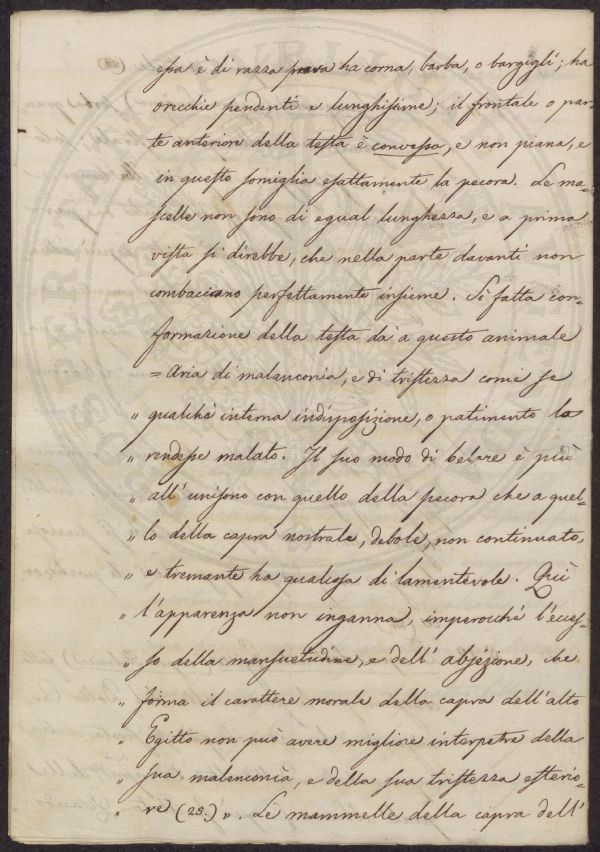 essa è di razza pura ha corna, barba, o bargigli; ha
orecchie pendenti e lunghissime; il frontale o par-
te anteriore della testa è convessa, e non piana, e
in questo somiglia esattamente la pecora. Le ma-
scelle non sono di egual lunghezza, e a prima
vista si direbbe, che nella parte davanti non
combaciano perfettamente insieme. Si fatta con-
formazione della testa dà a questo animale
= Aria di malenconia, e di tristezza come se
" qualche interna indisposizione, o patimento lo
" rendesse malato. Il suo modo di belare è più
" all'unisono con quello della pecora che a quel-
" lo della capra nostrale, debole, non continuato,
" e tremante ha qualcosa di lamentevole. Quì
" l'apparenza non inganna, imperocché l'ecces-
" so della mansuetudine, e dell'abjezione, che
" forma il carattere morale della capra dell'alto
" Egitto non può avere migliore interpetre della
" sua malenconia, e della sua tristezza esterio-
" re (25.) ". Le mammelle della capra dell'